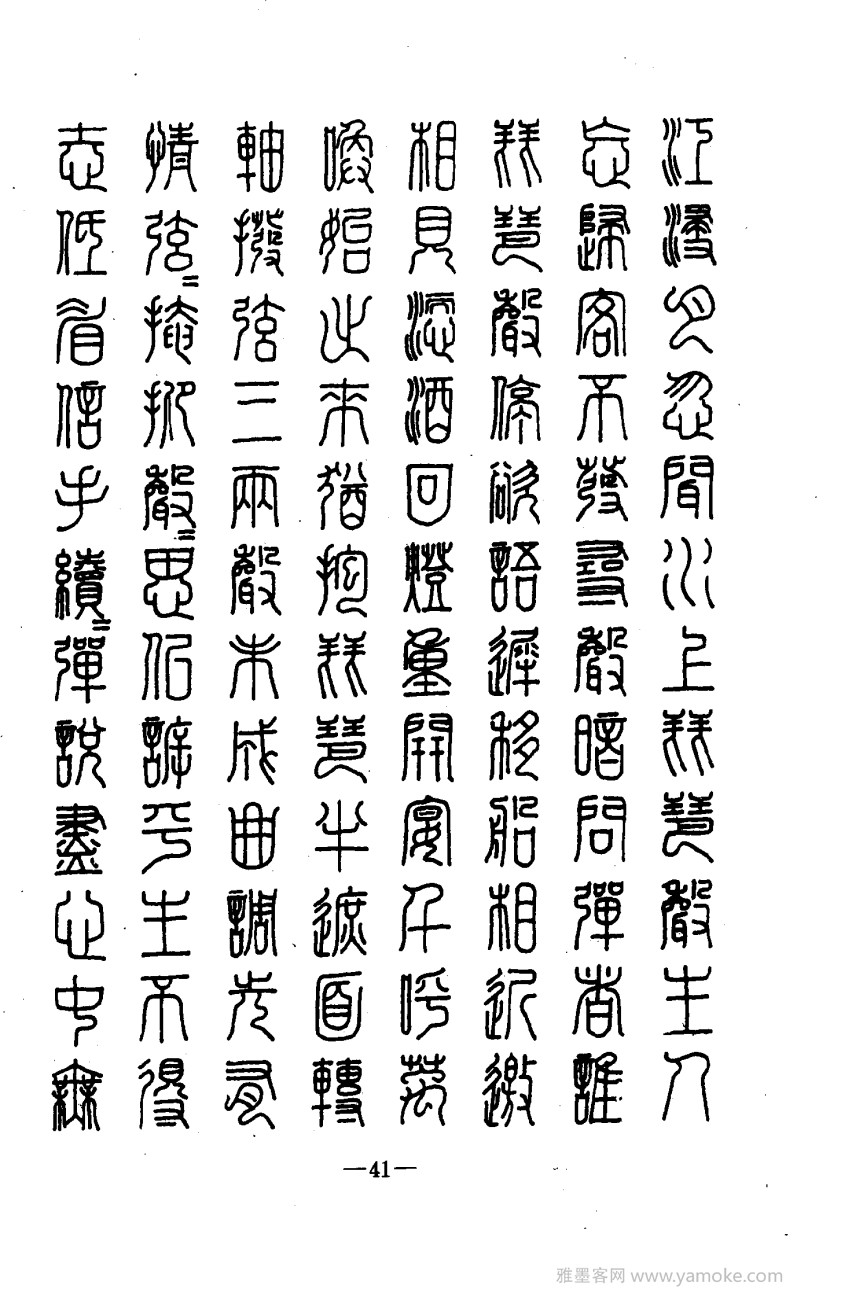 江浸月忽聞水上琵琶聲主人
忘歸客不發尋聲暗問彈者誰
琵琶聲停欲語遲移船相近邀
相見添酒回燈重開宴千呼萬
喚始出來猶抱琵琶半遮面轉
軸撥弦三兩聲未成曲調先有
情弦=掩抑聲=思似訴平生不得
志低眉信手續=彈說盡心中無
—41—
雅墨客网 www.yamoke.com